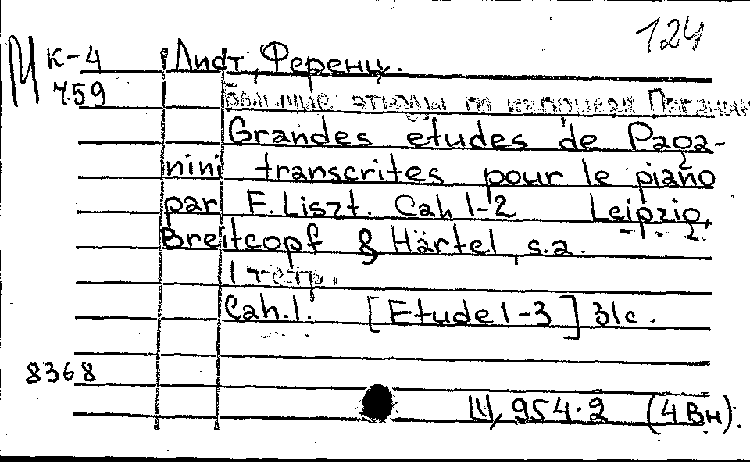 124
М К-4 Лист, Ференц.
759
Большие этюды по каприсам Паганини
Grandes etudes de Paga-
nini transcrites pour le piano
par F. Liszt. Cah 1-2 Leipzig,
Breitcopf & Härtel, s.a.
1 тетр.
Cah.1. [Etude 1-3] 31с.
8368
III, 954.2 (4Вн).